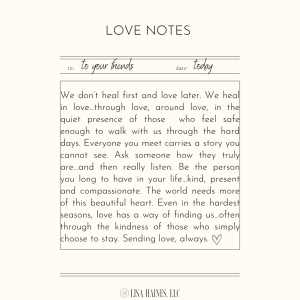 LOVE NOTES
to: to your friends date: today
We don't heal first and love later. We heal
in love...through love, around love, in the
quiet presence of those who feel safe
enough to walk with us through the hard
days. Everyone you meet carries a story you
cannot see. Ask someone how they truly
are...and then really listen. Be the person
you long to have in your life...kind, present
and compassionate. The world needs more
of this beautiful heart. Even in the hardest
seasons, love has a way of finding us...often
through the kindness of those who simply
choose to stay. Sending love, always. ♡
LISA HAINES, LLC